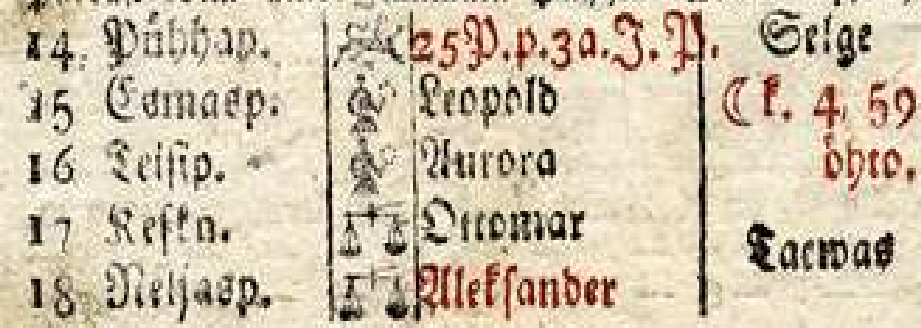 14. Pühhap. 25 P. p. 3a. J. P. Selge
15 Esmasp. Leopold ☾ k. 4, 59
16 Teisip. Aurora öhto.
17 Keskn. Ottomar Taewas
18 Neljasp. Aleksander